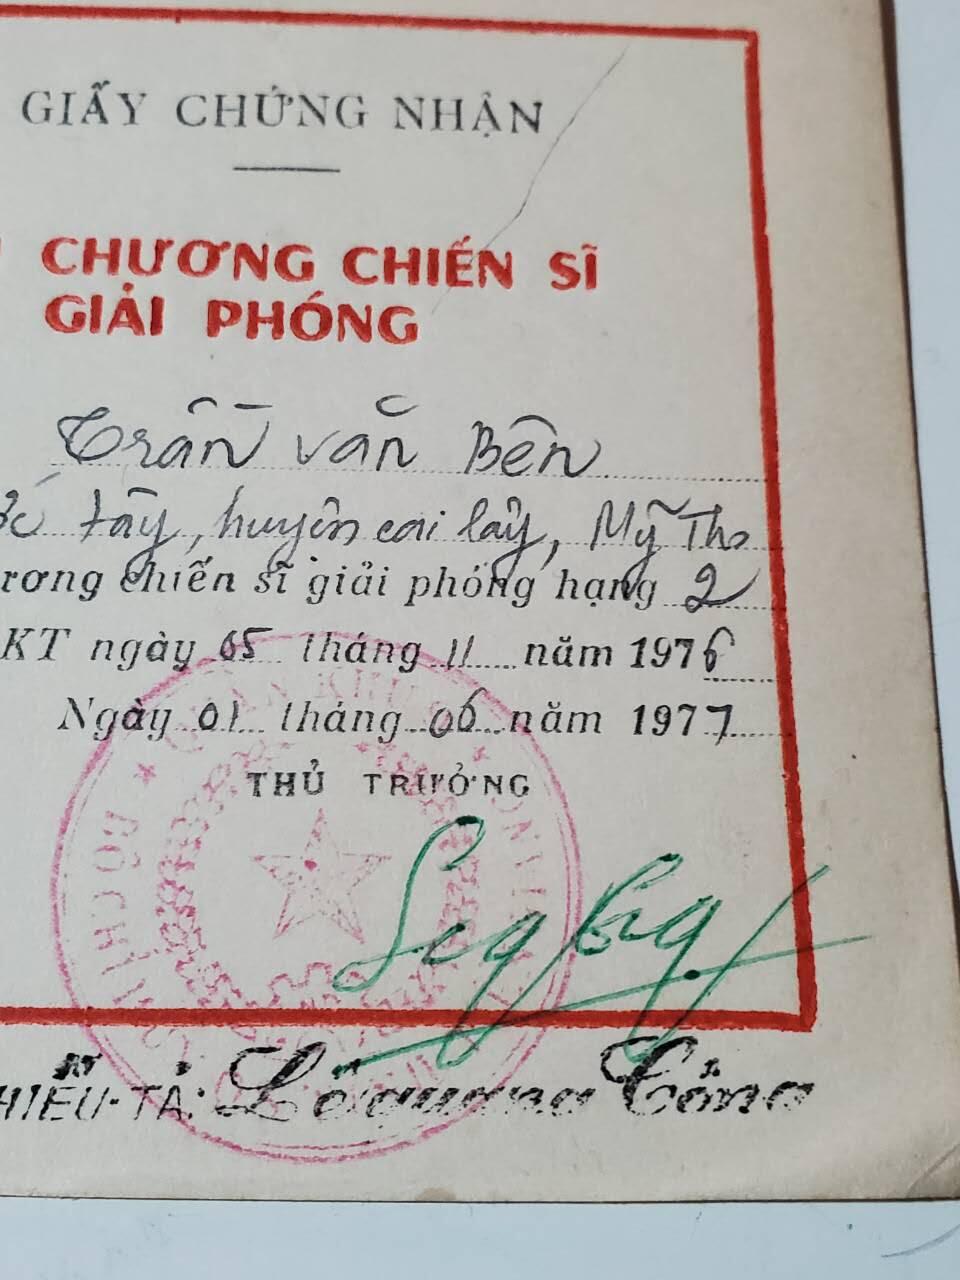 GIẤY CHỨNG NHẬN
CHƯƠNG CHIẾN SĨ
GIẢI PHÓNG
Trần Văn Bên
Tây, huyện cai lậy, Mỹ Tho
ương chiến sĩ giải phóng hạng 2
KT ngày 05 tháng 11 năm 1976
Ngày 01 tháng 06 năm 1977
THỦ TRƯỞNG
BỘ CHỈ
HIẾU-TÁ: Lê quang Công